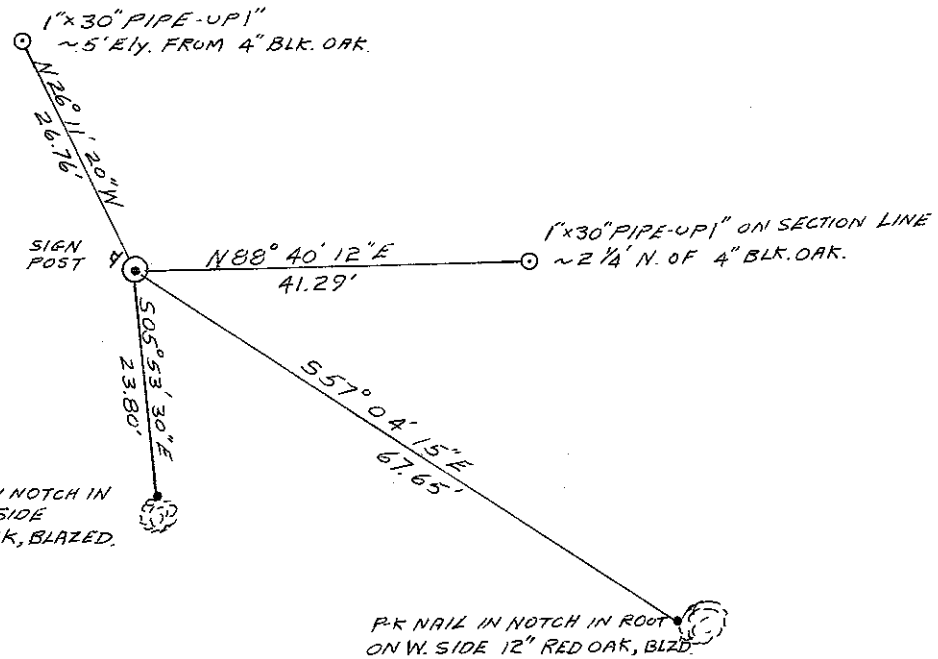 1"x30" PIPE-UP 1"
~5' Ely. FROM 4" BLK. OAK.
N26° 11' 20"W
26.76'
SIGN
POST
N88° 40' 12"E
41.29'
1"x30" PIPE-UP 1" ON SECTION LINE
~2 1/4' N. OF 4" BLK. OAK.
S05° 53' 30"E
23.80'
S57° 04' 15"E
67.65'
NOTCH IN
SIDE
K, BLAZED.
P-K NAIL IN NOTCH IN ROOT
ON W. SIDE 12" RED OAK, BLZD.